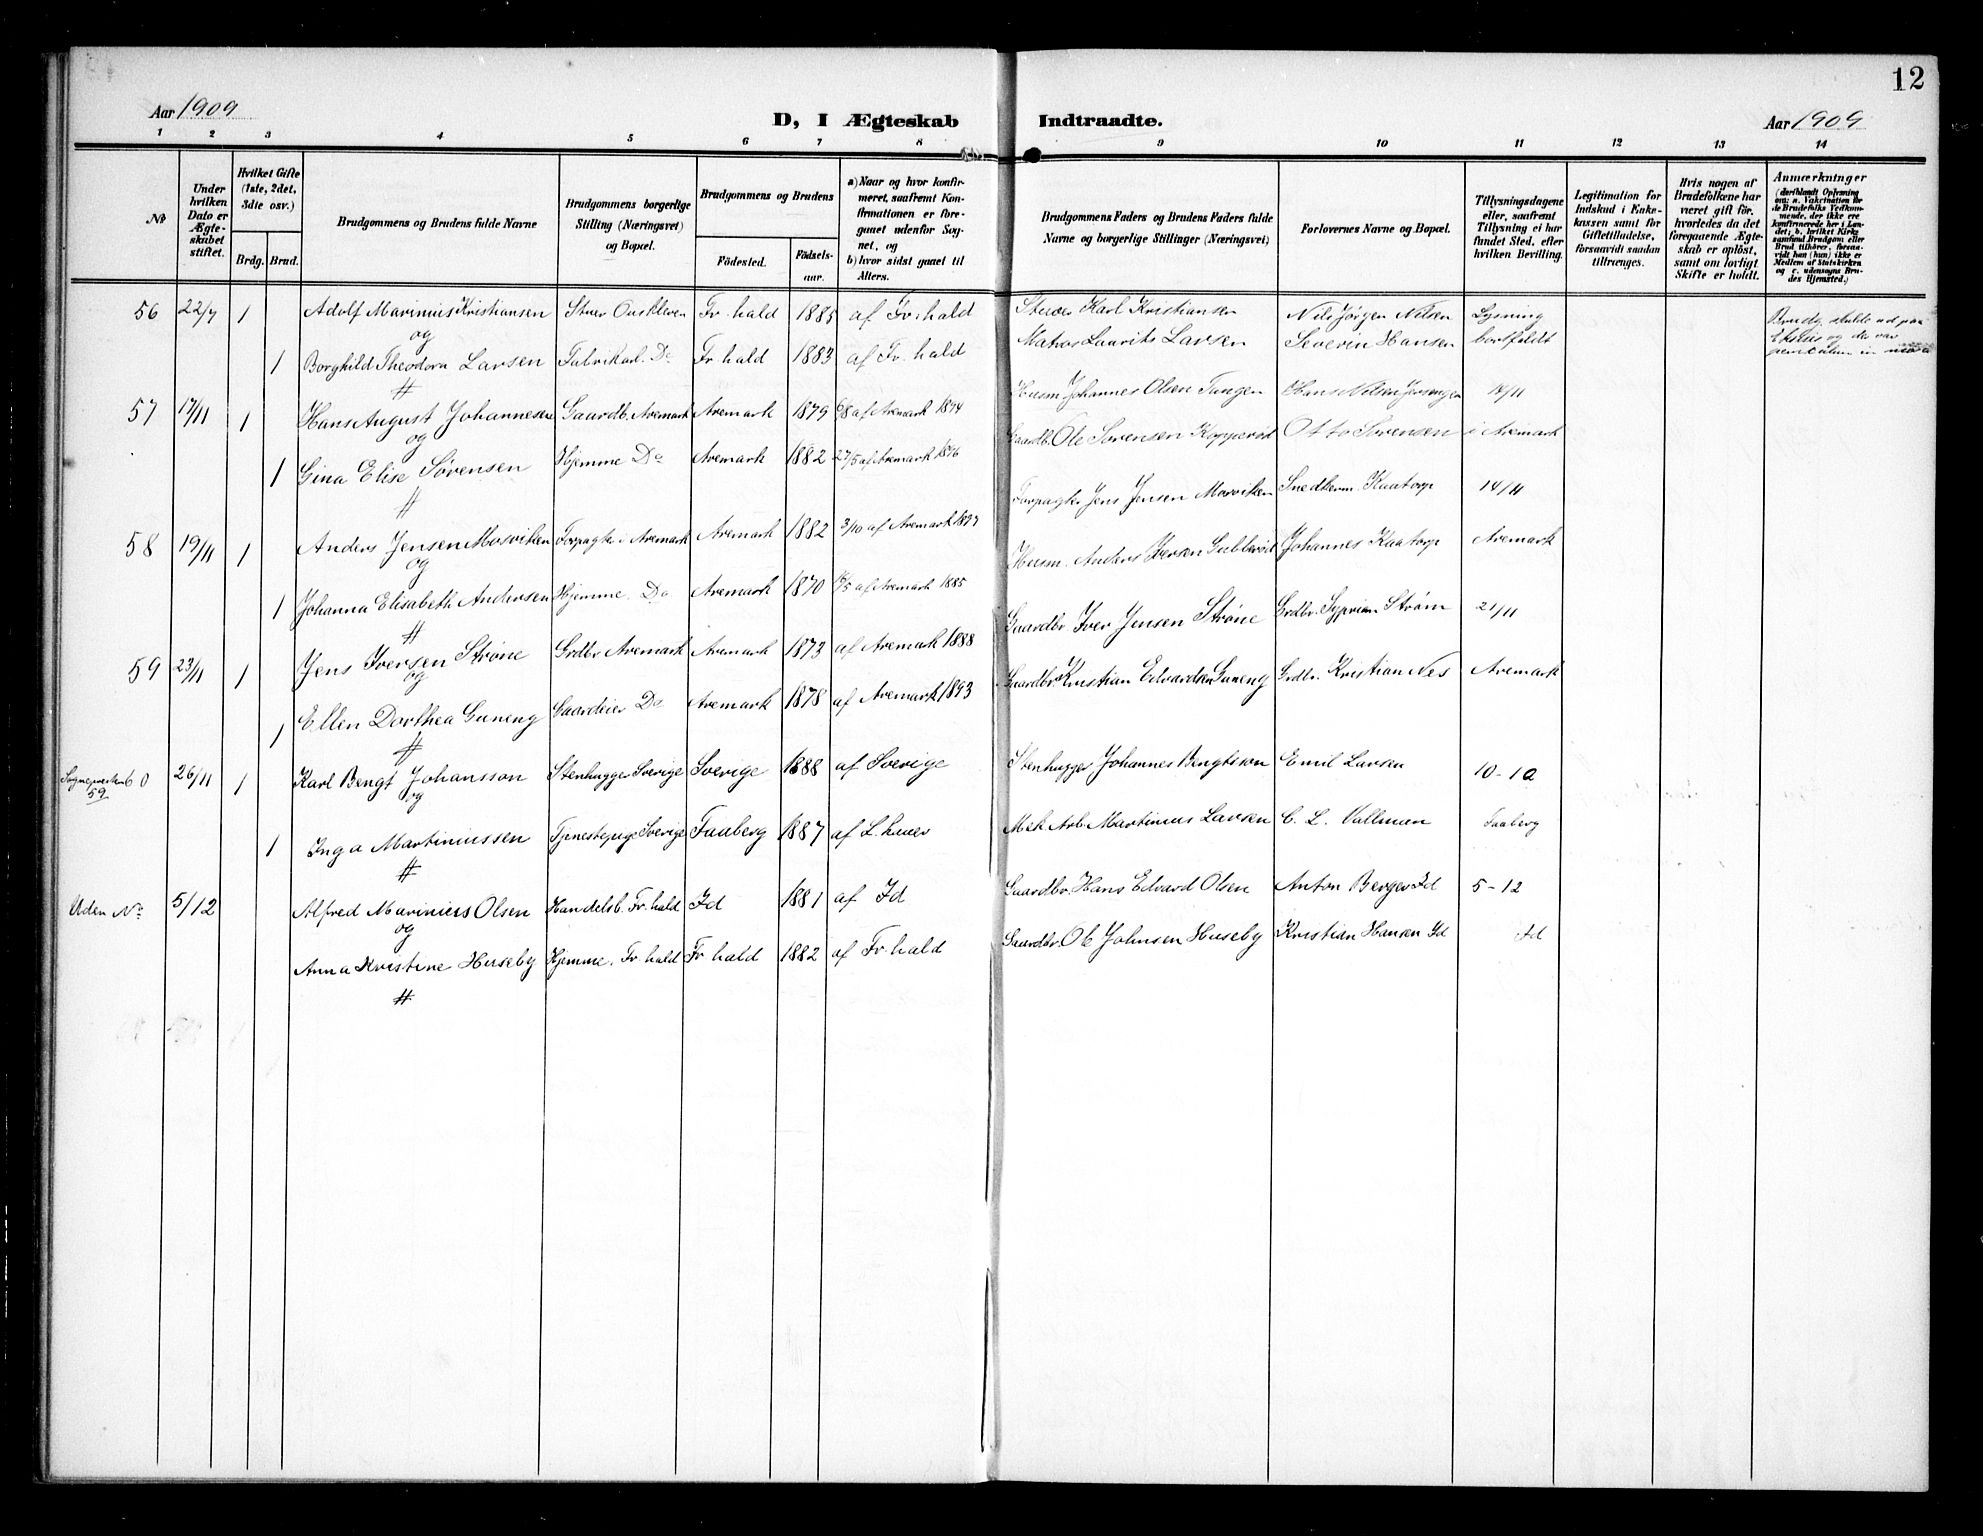 12
Aar 1909
D, I Ægteskab Indtraadte.
Aar 1909
1 2 3 4 5 6 7 8 9 10 11 12 13 14
No
Under hvilken Dato er Ægteskabet stiftet.
Hvilket Gifte (1ste, 2det, 3die osv.)
Brdg. Brud.
Brudgommens og Brudens fulde Navne
Brudgommens borgerlige Stilling (Næringsvei) og Bopæl.
Brudgommens og Brudens
Födested.
Födselsaar.
a) Naar og hvor konfirmeret, saafremt Konfirmationen er foregaaet udenfor Sognet, og
b) hvor sidst gaaet til Alters.
Brudgommens Faders og Brudens Faders fulde Navne og borgerlige Stillinger (Næringsvei)
Forlovernes Navne og Bopæl.
Tillysningsdagene eller, saafremt Tillysning ei har fundet Sted, efter hvilken Bevilling.
Legitimation for Indskud i Enkekassen samt for Giftetilladelse, forsaavidt saadan tiltrænges.
Hvis nogen af Brudefolkene har været gift för, hvorledes da det foregaaende Ægteskab er oplöst, samt om lovligt Skifte er holdt.
Anmærkninger
(deriblandt Oplysning om: a. Vakcination for de Brudefolks Vedkommende, der ikke ere konfirmerede her i Landet; b. hvilket Kirkesamfund Brudgom eller Brud tilhörer, forsaavidt han (hun) ikke er Medlem af Statskirken og c. udensogns Brudes Hjemsted.)
56 22/7 1 Adolf Marinius Kristiansen Fr.hald 1885 af Fr.hald Karl Kristiansen Nils Jörgen Nilsen Lysning
og
1 Borghild Theodora Larsen Do Fr.hald 1883 af Fr.hald Matros Laurits Larsen Severin Hansen bortfaldt
#
57 17/11 1 Hans August Johannesen Gaardb. Aremark Aremark 1879 6/8 af Aremark 1894 Husm Johannes Olsen Tangen Hans Nilsen 14/11
og
1 Gina Elise Sörensen Hjemme Do Aremark 1882 27/5 af Aremark 1896 Gaardbr. Ole Sörensen Otto Sörensen i Aremark
#
58 19/11 1 Anders Jensen Mosviken Forpagter i Aremark Aremark 1882 3/10 af Aremark 1897 Forpagter Jens Jensen Mosviken Snedkerm. Kaatorp 14/11
og
1 Johanna Elisabeth Andersen Hjemme. Do Aremark 1870 af Aremark 1885 Husm. Anders Iversen Johannes Kaatorp Aremark
#
59 23/11 1 Jens Iversen Ströne Grdbr Aremark Aremark 1873 af Aremark 1888 Gaardbr Iver Jensen Ströne Grdbr. Syprian Ström 21/11
og
1 Ellen Dorthea Guneng Gaardeier Do Aremark 1878 af Aremark 1893 Gaardbr. Kristian Edvardsen Guneng Grdbr. Kristian Nes Aremark
#
60 26/11 1 Karl Bengt Johansson Stenhugger Sverige Sverige 1888 af Sverige Stenhugger Johannes Bengtsson Emil Larsen 10-10
59
og
1 Inga Martiniussen Tjenestepige Sverige Faaberg 1887 af L.hmer Mek Arb. Martinius Larsen C. L. Vallman Faaberg
#
Uden No 5/12 Alfred Marinius Olsen Handelsb. Fr.hald Id 1881 af Id Gaardbr. Hans Edvard Olsen Anton Berger Id 5-12
og
Anna Kristine Huseby Hjemme. Fr.hald Fr hald 1882 af Fr.hald Gaardbr. Ole Johnsen Huseby Kristian Hansen Id Id
#